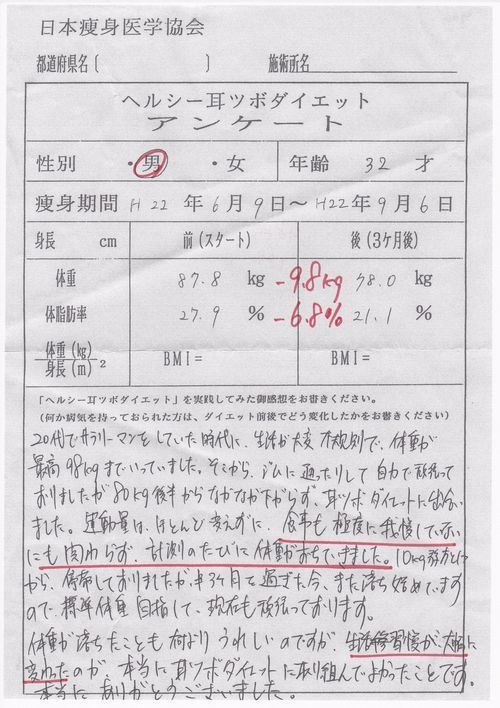 日本痩身医学協会
都道府県名〔 〕 施術所名
ヘルシー耳ツボダイエット
アンケート
性別 ・男 ・女 年齢 32 才
痩身期間 H22 年 6 月 9 日～ H22 年 9 月 6 日
身長 cm 前(スタート) 後(3ケ月後)
体重 87.8 kg -9.8kg 78.0 kg
体脂肪率 27.9 % -6.8% 21.1 %
体重(kg) / 身長(m) 2 BMI= BMI=
「ヘルシー耳ツボダイエット」を実践してみた御感想をお書きください。
(何か病気を持っておられた方は、ダイエット前後でどう変化したかをお書きください)
20代でサラリーマンをしていた時代に、生活が大変不規則で、体重が
最高98kgまでいっていました。そこから、ジムに通ったりして自力で頑張って
おりましたが80kg後半からなかなか下がらず、耳ツボダイエットに出会い
ました。運動量は、ほとんど変えずに、食事も極度に我慢していない
にも関わらず、計測のたびに体重がおちていきました。10kg減
から、停滞しておりましたが、3ヶ月を過ぎた今、また落ち始めてます
ので、標準体重目指して、現在も頑張っております。
体重が落ちたことも何よりうれしいのですが、生活習慣が大幅に
変わったのが、本当に耳ツボダイエットに取り組んでよかったことです。
本当にありがとうございました。